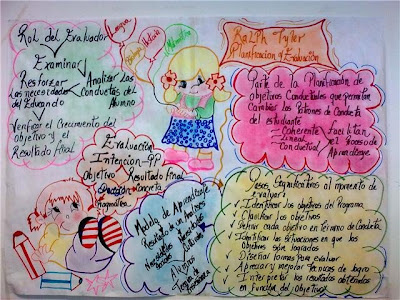 Rol del Evaluador
Examinar
Reforzar
Las necesidades
del Educando
Analizar las
Conductas del
Alumno
Verificar el Crecimiento del
objetivo y el
Resultado Final
Lengua
Historia
Ralph Tyler
Planificación y Evaluación
Parte de la Planificación de
objetivos Conductuales que permitan
Cambiar los Patrones de Conducta
del estudiante
Coherente
Lineal
Conductual
Facilitan
el Proceso de
Aprendizaje
Evaluación
Intención-PP
Objetivo
Resultado Final
Concreta
Pragmática
Modelo de Aprendizaje
Resultado de los Analisis
Necesidades
Sociales
Alumno
Pasos Significativos al momento de
Evaluar
✓ Identificar los objetivos del Programa
✓ Clasificar los objetivos
✓ Definir cada objetivo en término de Conducta
✓ Identificar las Situaciones en que los
objetivos son logrados
✓ Diseñar formas para evaluar
✓ Apreciar y mejorar tecnicas de logro
✓ Interpretar los resultados obtenidos
en función del objetivo